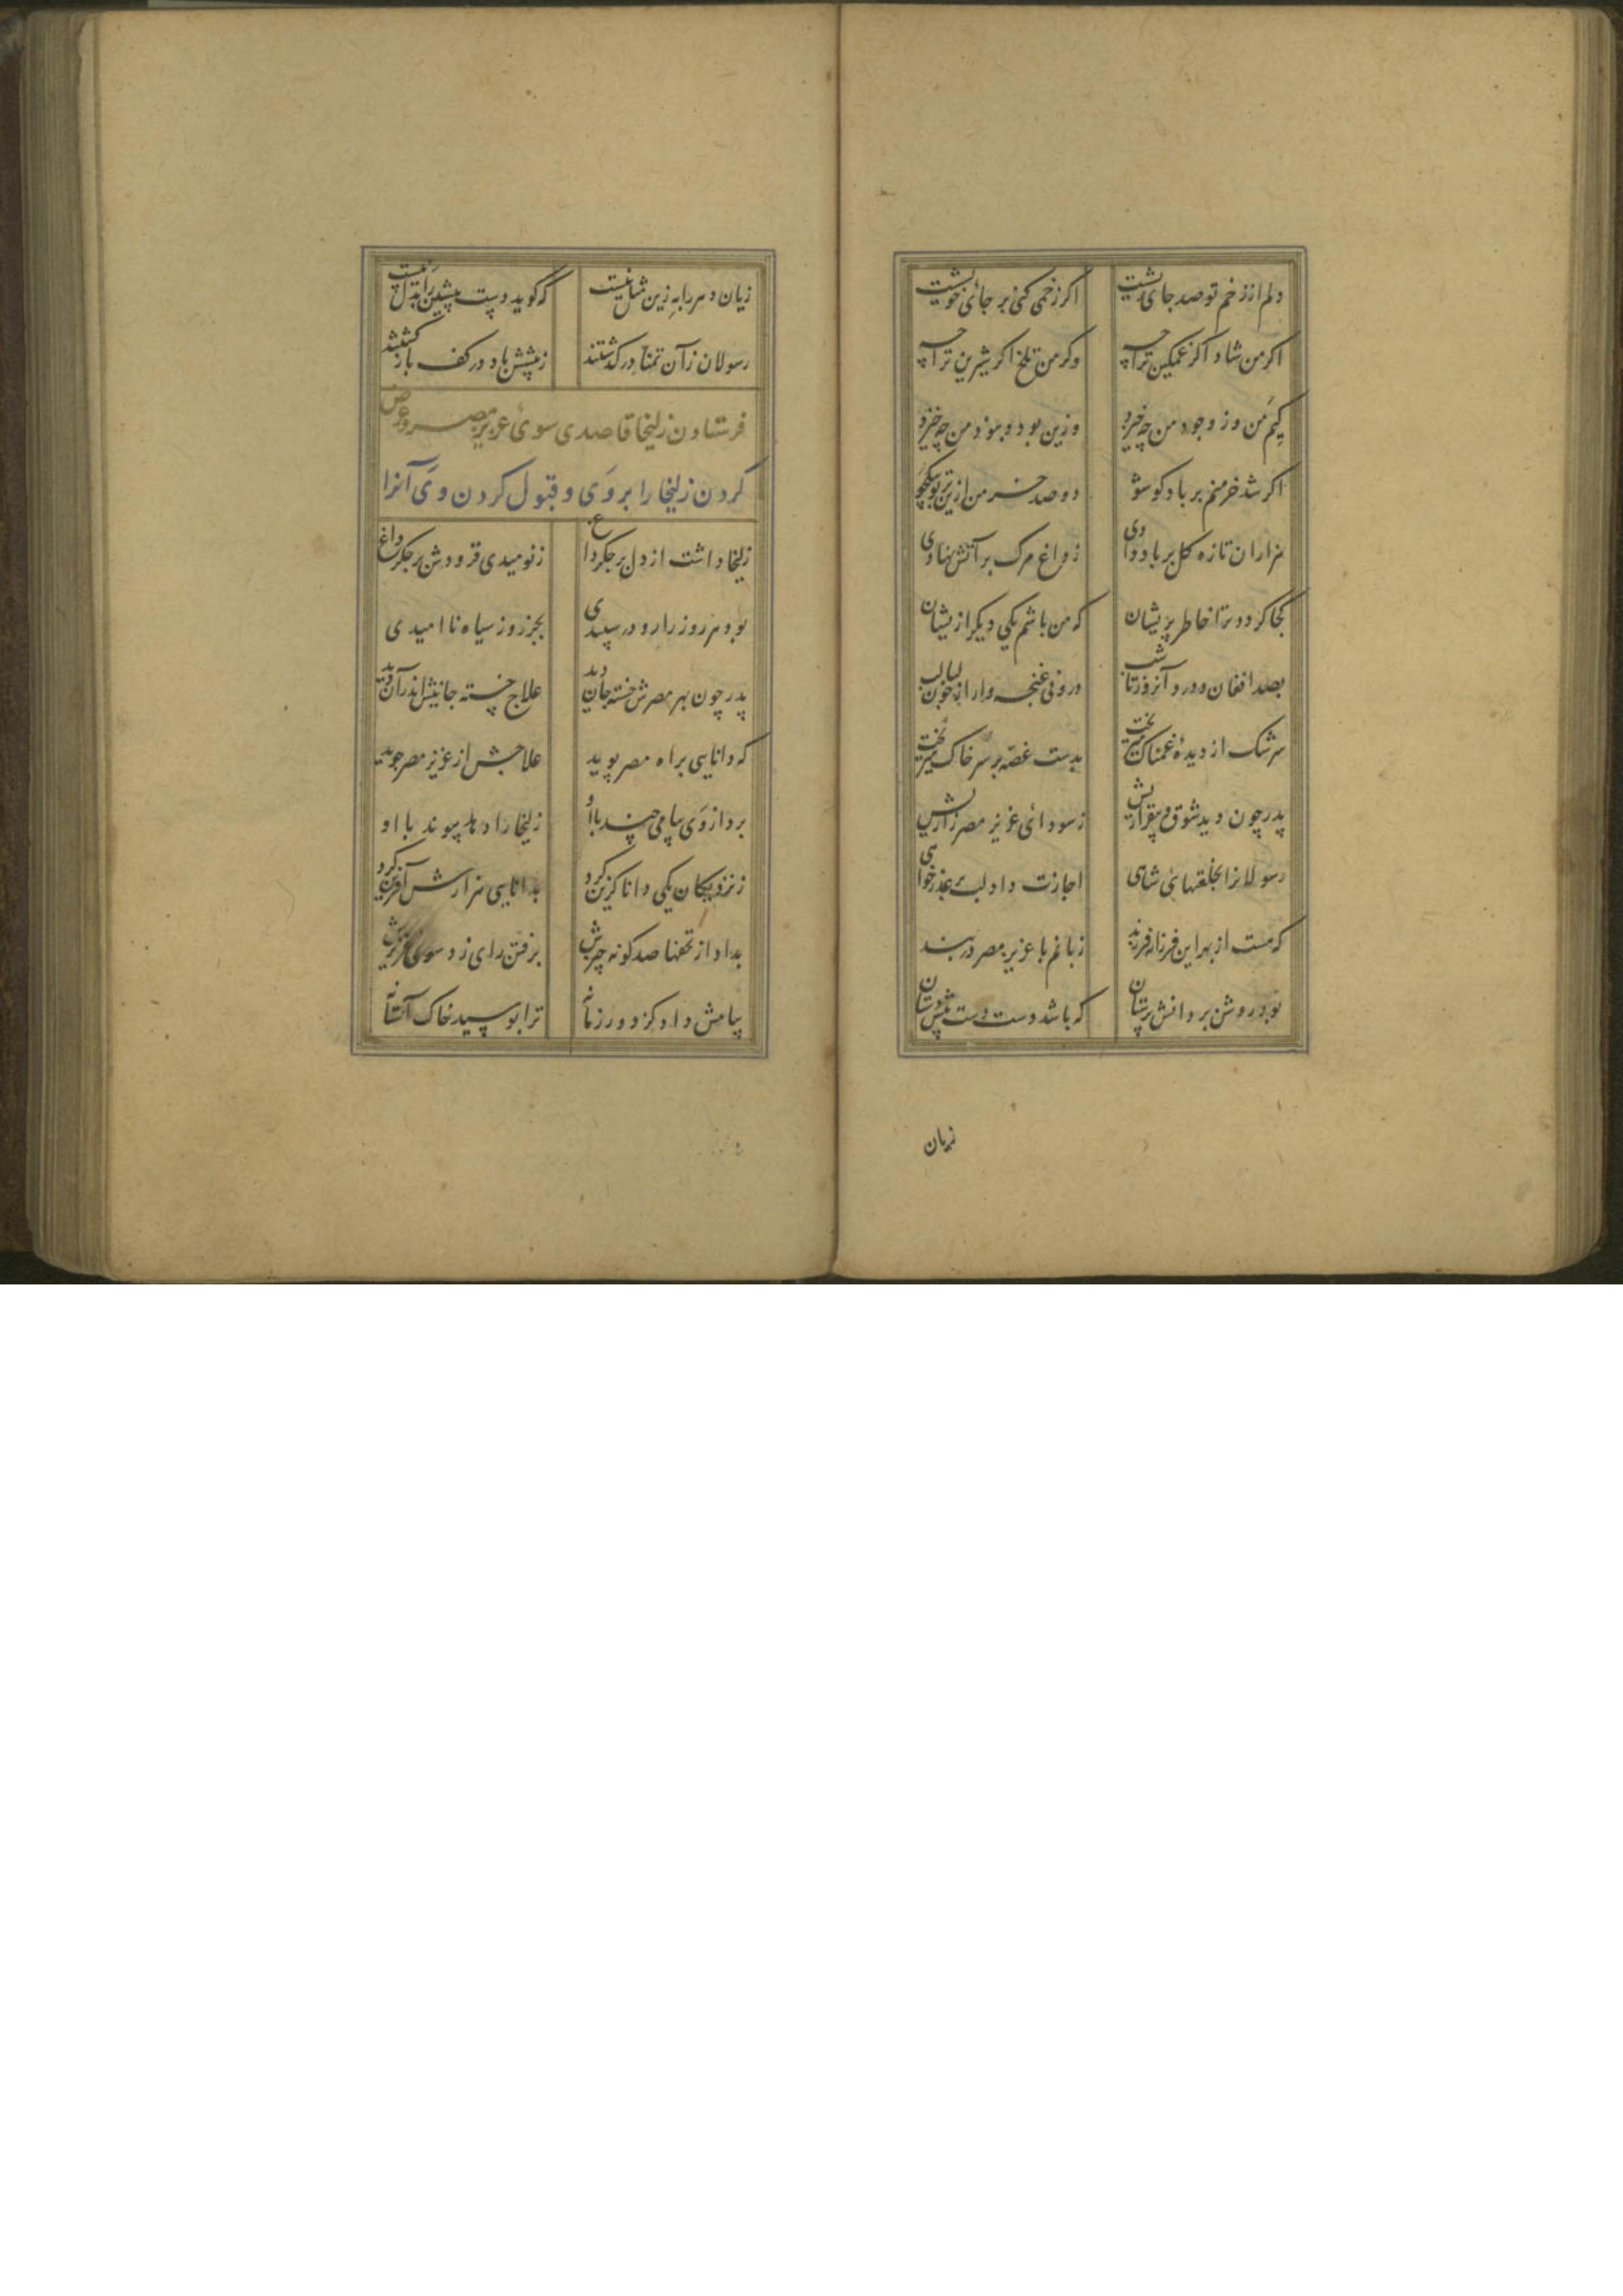 دلم از زخم تو صد جای ریشست اگر زخمی کنی بر جائ خویشست
اگر من شاد اگر غمگین ترا چه وگر من تلخ اگر شیرین ترا چه
کیم من وز وجود من چه خیزد وزین بود و نمود من چه خیزد
اگر شد خرمنم بر باد کو شو دو صد خرمن ازین بر تو بیک جو
هزاران تازه گل بر باد دادی ز داغ مرگ بر آتش نهادی
کجا گردد ترا خاطر پریشان که من باشم یکی دیگر ازیشان
بصد افغان و درد آنروز تا شب درونی غنچه وار از خون لبالب
سرشک از دیدهٔ غمناک میریخت بدست غصه بر سر خاک میریخت
پدر چون دید شوق و بیقراریش ز سودائ عزیز مصر زاریش
رسولانرا بخلعتهائ شاهی اجازت داد لب پر عذرخواهی
که هست از بهر این فرزانه فرزند زبانم با عزیز مصر در بند
بود روشن بر دانش پرستان که باشد دست دست پیش دستان
زبان
زبان دهر را به زین مثل نیست که گوید دست پیشین را بدل نیست
رسولان زآن تمنا در گذشتند ز پیشش باد در کف باز گشتند
فرستادن زلیخا قاصدی سوئ عزیز مصر و عرض
کردن زلیخا را بر وی و قبول کردن وی آنرا
زلیخا داشت از دل بر جگر داغ ز نومیدی فزودش بر جگر داغ
بود هر روز را رو در سپیدی بجز روز سیاه نا امیدی
پدر چون بهر مصرش خسته جان دید علاج خسته جانیش اندر آن دید
که دانایی براه مصر پوید علاجش از عزیز مصر جوید
برد از وی پیامی چند با او زلیخا را دهد پیوند با او
ز نزدیکان یکی دانا گزین کرد بدانایی هزارش آفرین کرد
بداد از تحفها صد گونه چیزش برفتن رای زد سوی عزیزش
پیامش داد کز دور زمانه ترا بوسید خاک آستانه